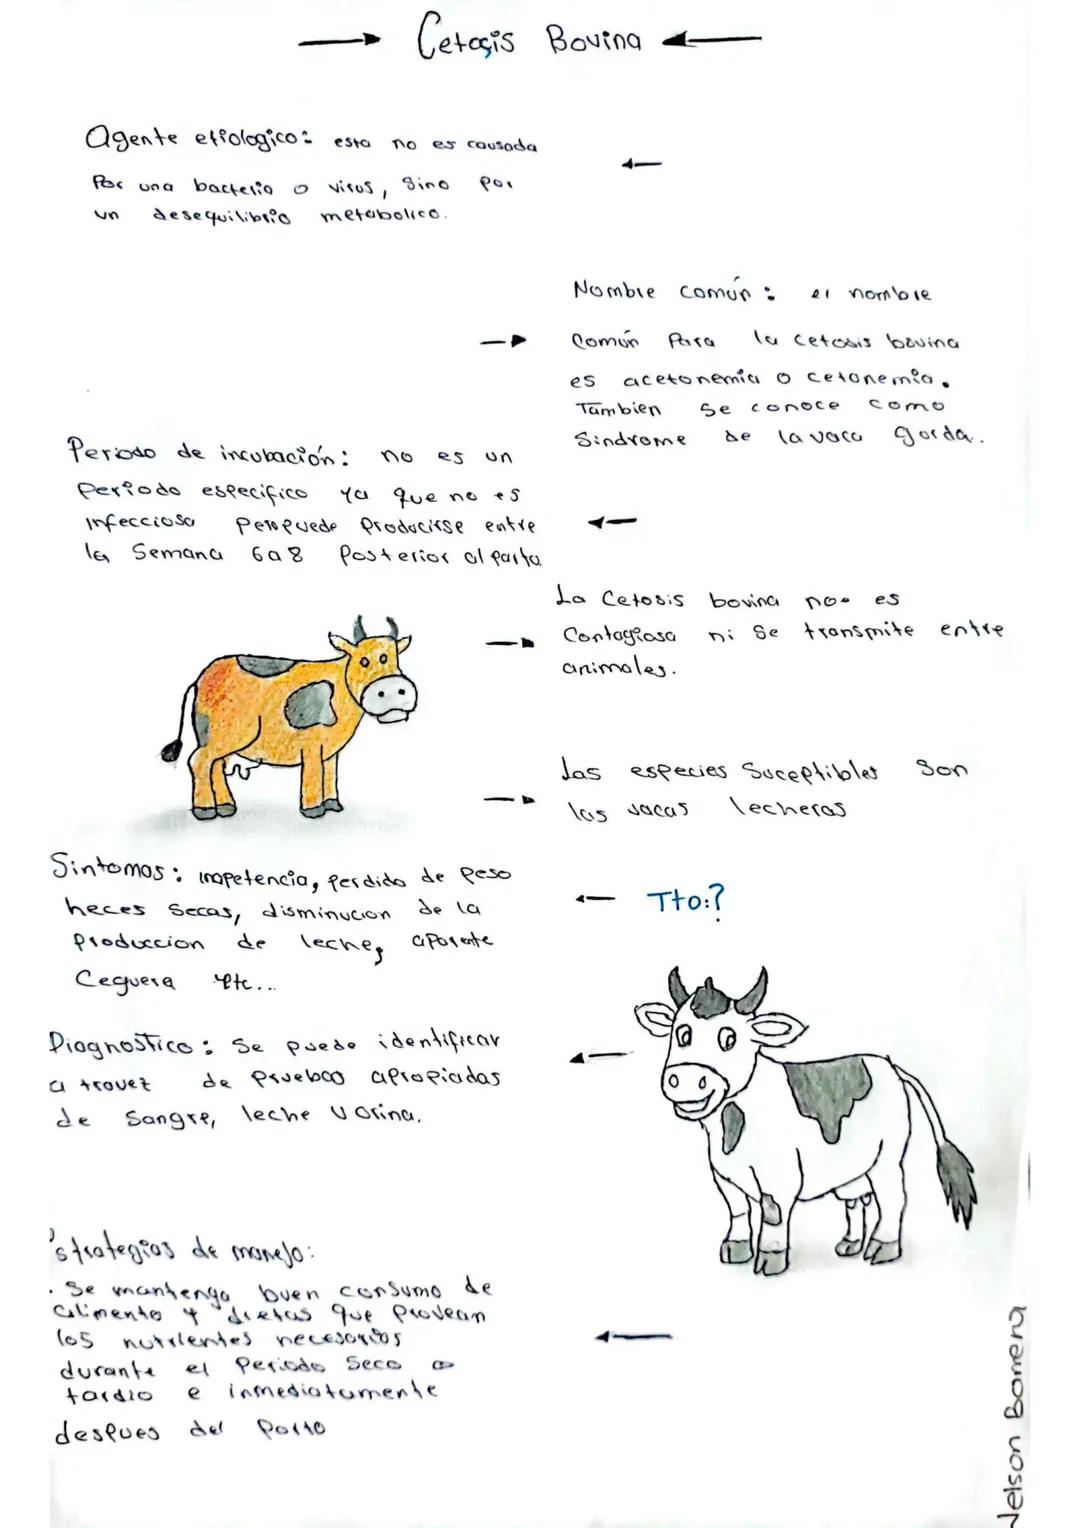 Cetosis Bovina
Agente etiologico: esta no es causada
Por una bacteria o virus, Sino por
un desequilibrio metabolico.
Nombre común: el nombre
Común Para la cetosis bovina
es acetonemia o cetonemia.
Tambien se conoce como
Sindrome de la vaca gorda.
Periodo de incubación: no es un
Periodo especifico ya que no es
infecciosa pero puede Producirse entre
la Semana 6 a 8 Posterior al parto
La Cetosis bovina no es
Contagiosa ni se transmite entre
animales.
Las especies Suceptibles Son
las vacas lecheras
Sintomas: inapetencia, perdida de peso
heces secas, disminucion de la
Produccion de leche, aparente
Ceguera etc...
Tto:?
Diagnostico: Se puede identificar
a travez de pruebas apropiadas
de Sangre, leche u orina.
Estrategias de manejo:
. Se mantenga buen consumo de
alimento y dietas que provean
los nutrientes necesarios
durante el Periodo Seco o
tardio e inmediatamente
despues del Parto
Nelson Barrera